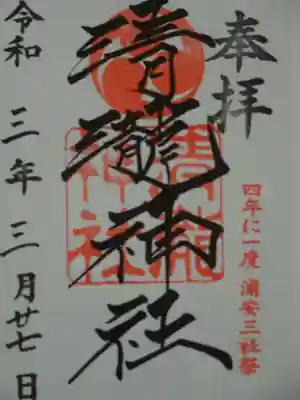 奉拝
四年に一度 浦安三社祭
清瀧神社
清瀧神社
令和三年三月廿七日